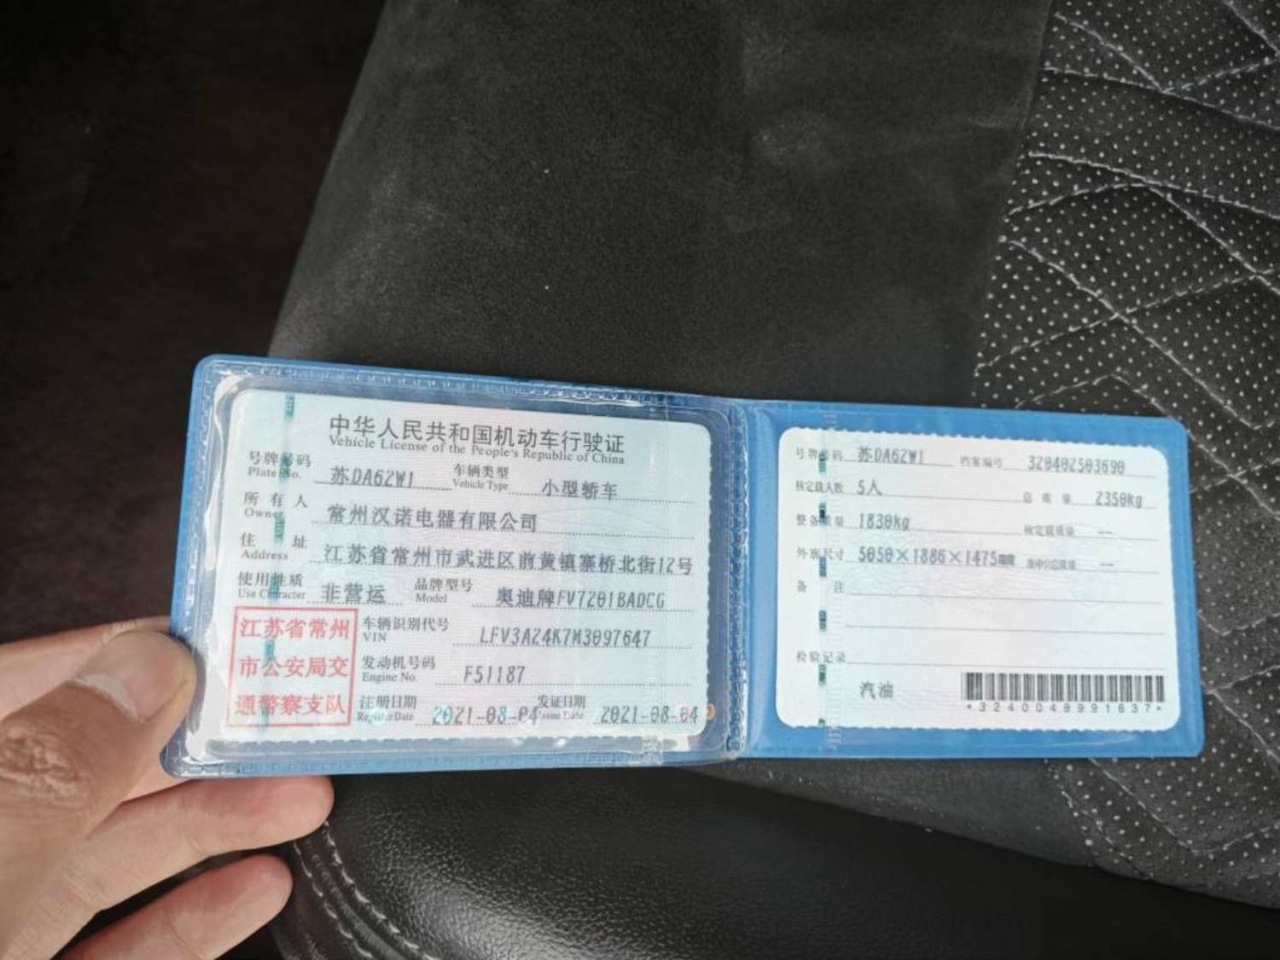 中华人民共和国机动车行驶证
Vehicle License of the People's Republic of China
号牌号码 苏DA62W1 车辆类型 小型轿车
Plate No. Vehicle Type
所有人 常州汉诺电器有限公司
Owner
住址 江苏省常州市武进区前黄镇寨桥北街12号
Address
使用性质 非营运 品牌型号 奥迪牌FV7201BADCG
Use Character Model
江苏省常州
市公安局交
通警察支队
车辆识别代号 LFV3A24K7M3097647
VIN
发动机号码 F51187
Engine No.
注册日期 2021-08-04 发证日期 2021-08-04
Register Date Issue Date
号牌号码 苏DA62W1 档案编号 320402503690
核定载人数 5人 总质量 2350kg
整备质量 1830kg 核定载质量 --
外廓尺寸 5050×1886×1475 --
备注
检验记录
汽油
*3240048991637*